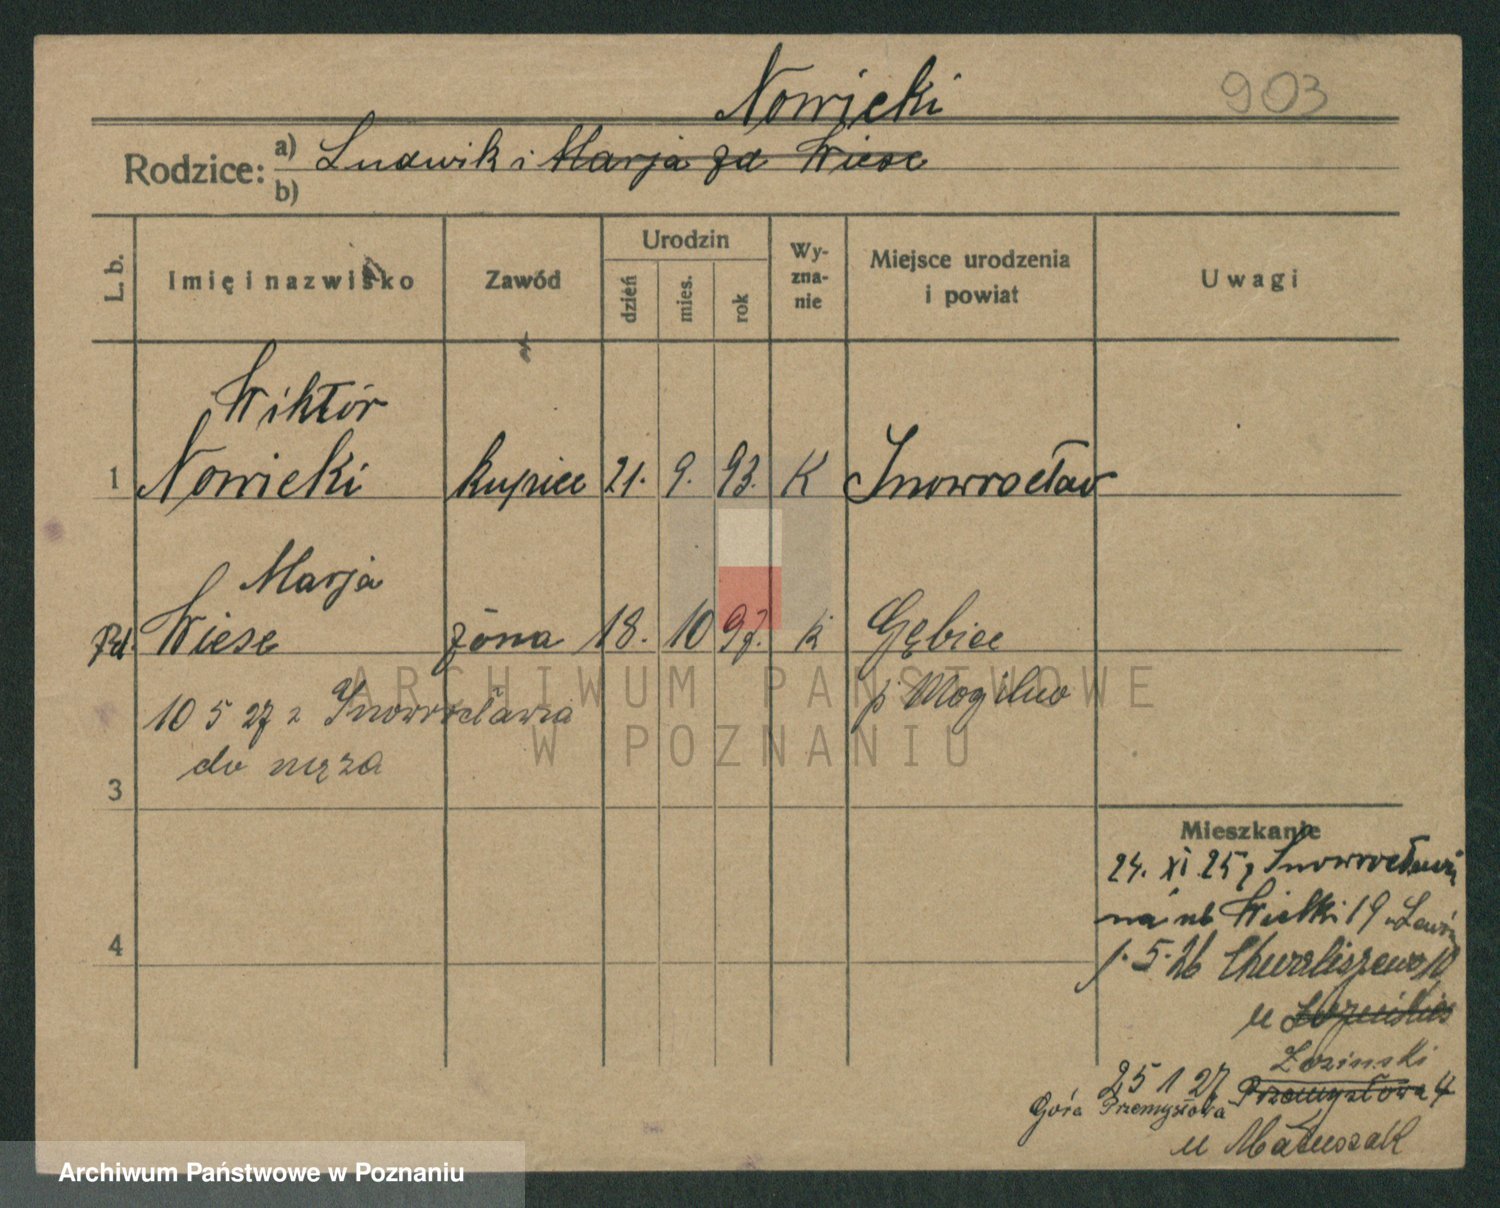 903
Nowicki
Rodzice: a) Ludwik i Marja zd Wiese
b)
L. b. Imię i nazwisko Zawód Urodzin dzień mies. rok Wy-zna-nie Miejsce urodzenia i powiat Uwagi
Wiktór
1 Nowicki kupiec 21. 9. 93. K Inowrocław
Marja
Wiese żona 18. 10 97. k Gębice
10 5 27 z Inowrocławia p Mogilno
do męża
3
Mieszkanie
24. XI 25 z Inowrocławia
na Wielki 19
4
1. 5. 26 Chwaliszewo 10
u
Łoziński
25 1 27 Przemysłowa 4
Góra Przemysłowa
u Matuszak
ARCHIWUM PAŃSTWOWE
W POZNANIU
Archiwum Państwowe w Poznaniu